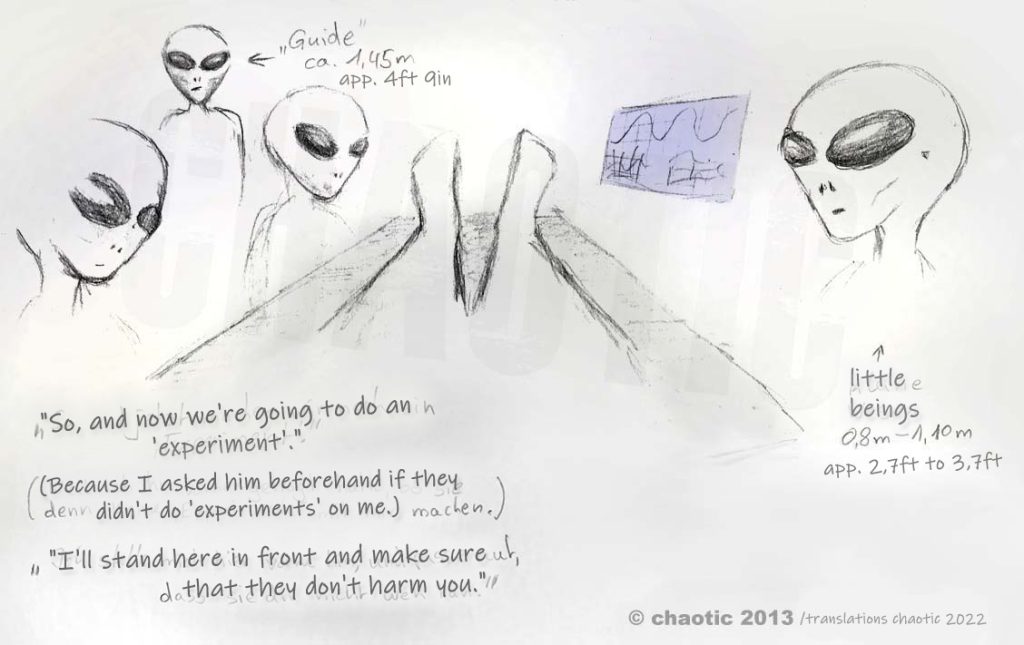 „Guide"
ca. 1,45m
app. 4ft 9in
little
beings
0,8m – 1,10m
app. 2,7ft to 3,7ft
"So, and now we're going to do an
'experiment'."
(Because I asked him beforehand if they
denn didn't do 'experiments' on me.) machen.)
"I'll stand here in front and make sure
that they don't harm you."
© chaotic 2013 /translations chaotic 2022
CHAOTIC